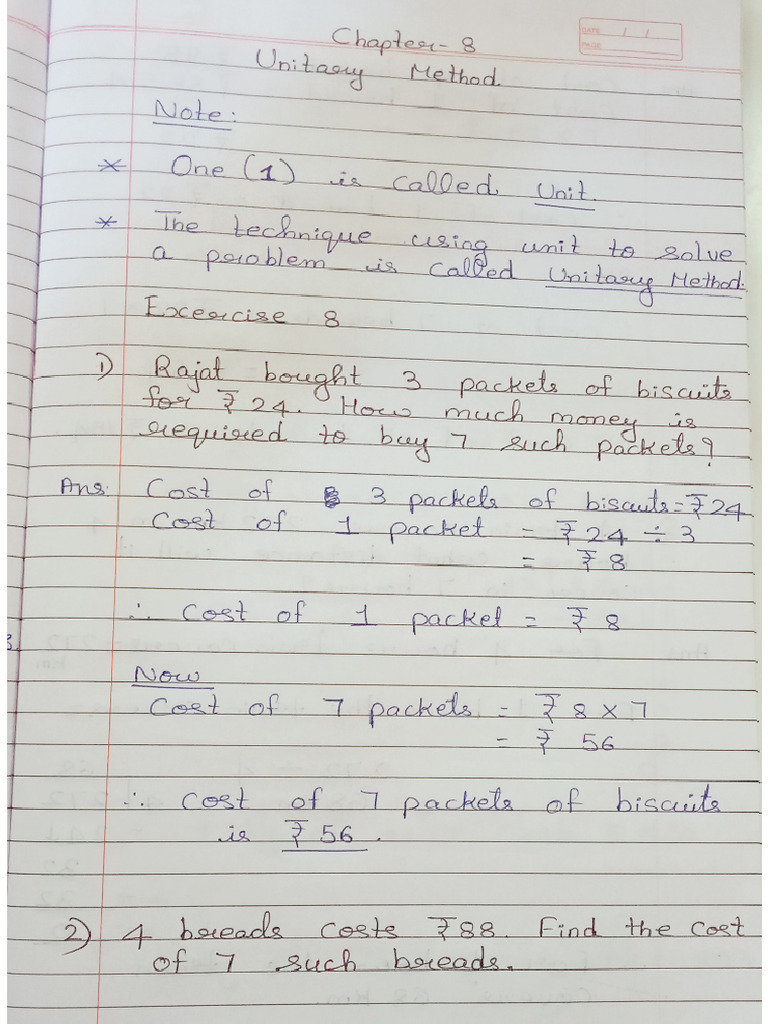 Chapter - 8
DATE / /
PAGE
Unitary Method
Note:
* One (1) is called Unit.
* The technique using unit to solve
a problem is called Unitary Method.
Excercise 8
1) Rajat bought 3 packets of biscuits
for ₹ 24. How much money is
required to buy 7 such packets?
Ans: Cost of 3 packets of biscuits = ₹ 24
Cost of 1 packet = ₹ 24 ÷ 3
= ₹ 8
∴ Cost of 1 packet = ₹ 8
Now
Cost of 7 packets = ₹ 8 × 7
= ₹ 56
∴ cost of 7 packets of biscuits
is ₹ 56.
2) 4 breads costs ₹88. Find the cost
of 7 such breads.